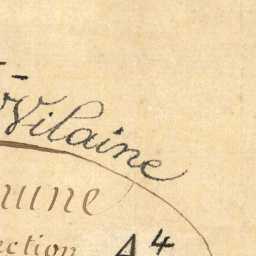 Vilaine
mune
ection A4